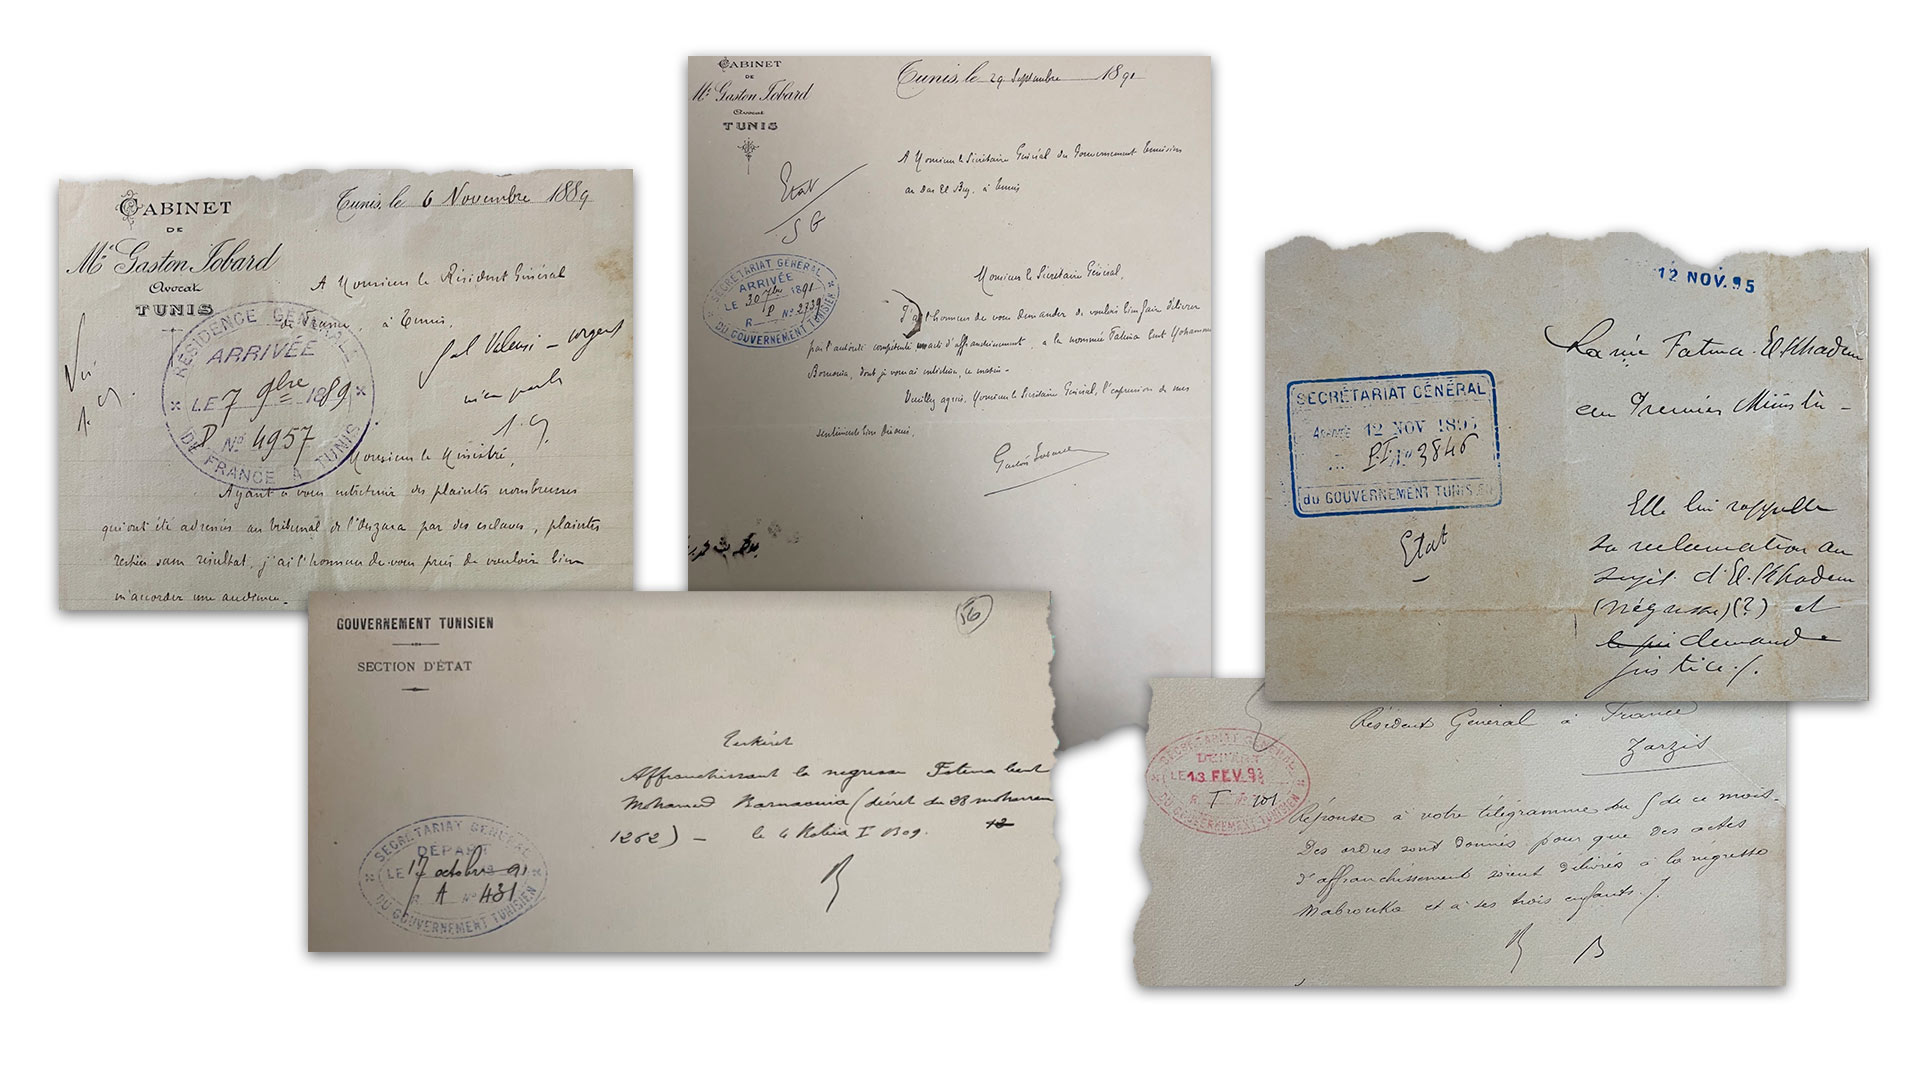 CABINET
DE
Me Gaston Jobard
Avocat
TUNIS
Tunis, le 6 Novembre 1889
A Monsieur le Résident Général
de France, à Tunis,
RÉSIDENCE GÉNÉRALE
ARRIVÉE
LE 7 9bre 1889
P N° 4957
DE FRANCE A TUNIS
Gal Valensi - urgent
m'en parler
Monsieur le Ministre,
Ayant à vous entretenir des plaintes nombreuses
qui ont été adressées au tribunal de l'Ouzara par des esclaves, plaintes
restées sans résultat, j'ai l'honneur de vous prier de vouloir bien
m'accorder une audience.
CABINET
DE
Me Gaston Jobard
Avocat
TUNIS
Tunis, le 29 Septembre 1891
A Monsieur le Secrétaire Général du Gouvernement tunisien
au Dar El Bey, à Tunis
Etat
SG
SECRÉTARIAT GÉNÉRAL
ARRIVÉE
LE 30 7bre 1891
R P N° 2739
DU GOUVERNEMENT TUNISIEN
Monsieur le Secrétaire Général,
J'ai l'honneur de vous demander de vouloir bien faire délivrer
par l'autorité compétente un acte d'affranchissement, a la nommée Fatma bent Mohamed
Bornaouia, dont je vous ai entretenu, ce matin.
Veuillez agréer, Monsieur le Secrétaire Général, l'expression de mes
sentiments bien dévoués,
Gaston Jobard
12 NOV. 95
La née Fatma El Khadem
au Premier Ministre -
SECRÉTARIAT GÉNÉRAL
ARRIVÉE 12 NOV 1895
P.I. N° 3846
du GOUVERNEMENT TUNISIEN
Etat
Elle lui rappelle
sa réclamation au
sujet d'El Khadem
(négresse) (?) et
demande
justice /.
GOUVERNEMENT TUNISIEN
SECTION D'ÉTAT
56
Teskéret
Affranchissant la negresse Fatma bent
Mohamed Barnaouia (décret du 28 moharrem
1262) - le 4 Rabia I 1309. 12
SECRÉTARIAT GÉNÉRAL
DÉPART
LE 17 octobre 91
R. A N° 431
DU GOUVERNEMENT TUNISIEN
Résident Général à France
Zarzis
SECRÉTARIAT GÉNÉRAL
DÉPART
LE 13 FEV. 9
R. T N° 101
DU GOUVERNEMENT TUNISIEN
Réponse à votre télégramme du 5 de ce mois.
Des ordres sont donnés pour que des actes
d'affranchissement soient délivrés à la négresse
Mabrouka et à ses trois enfants /.
B